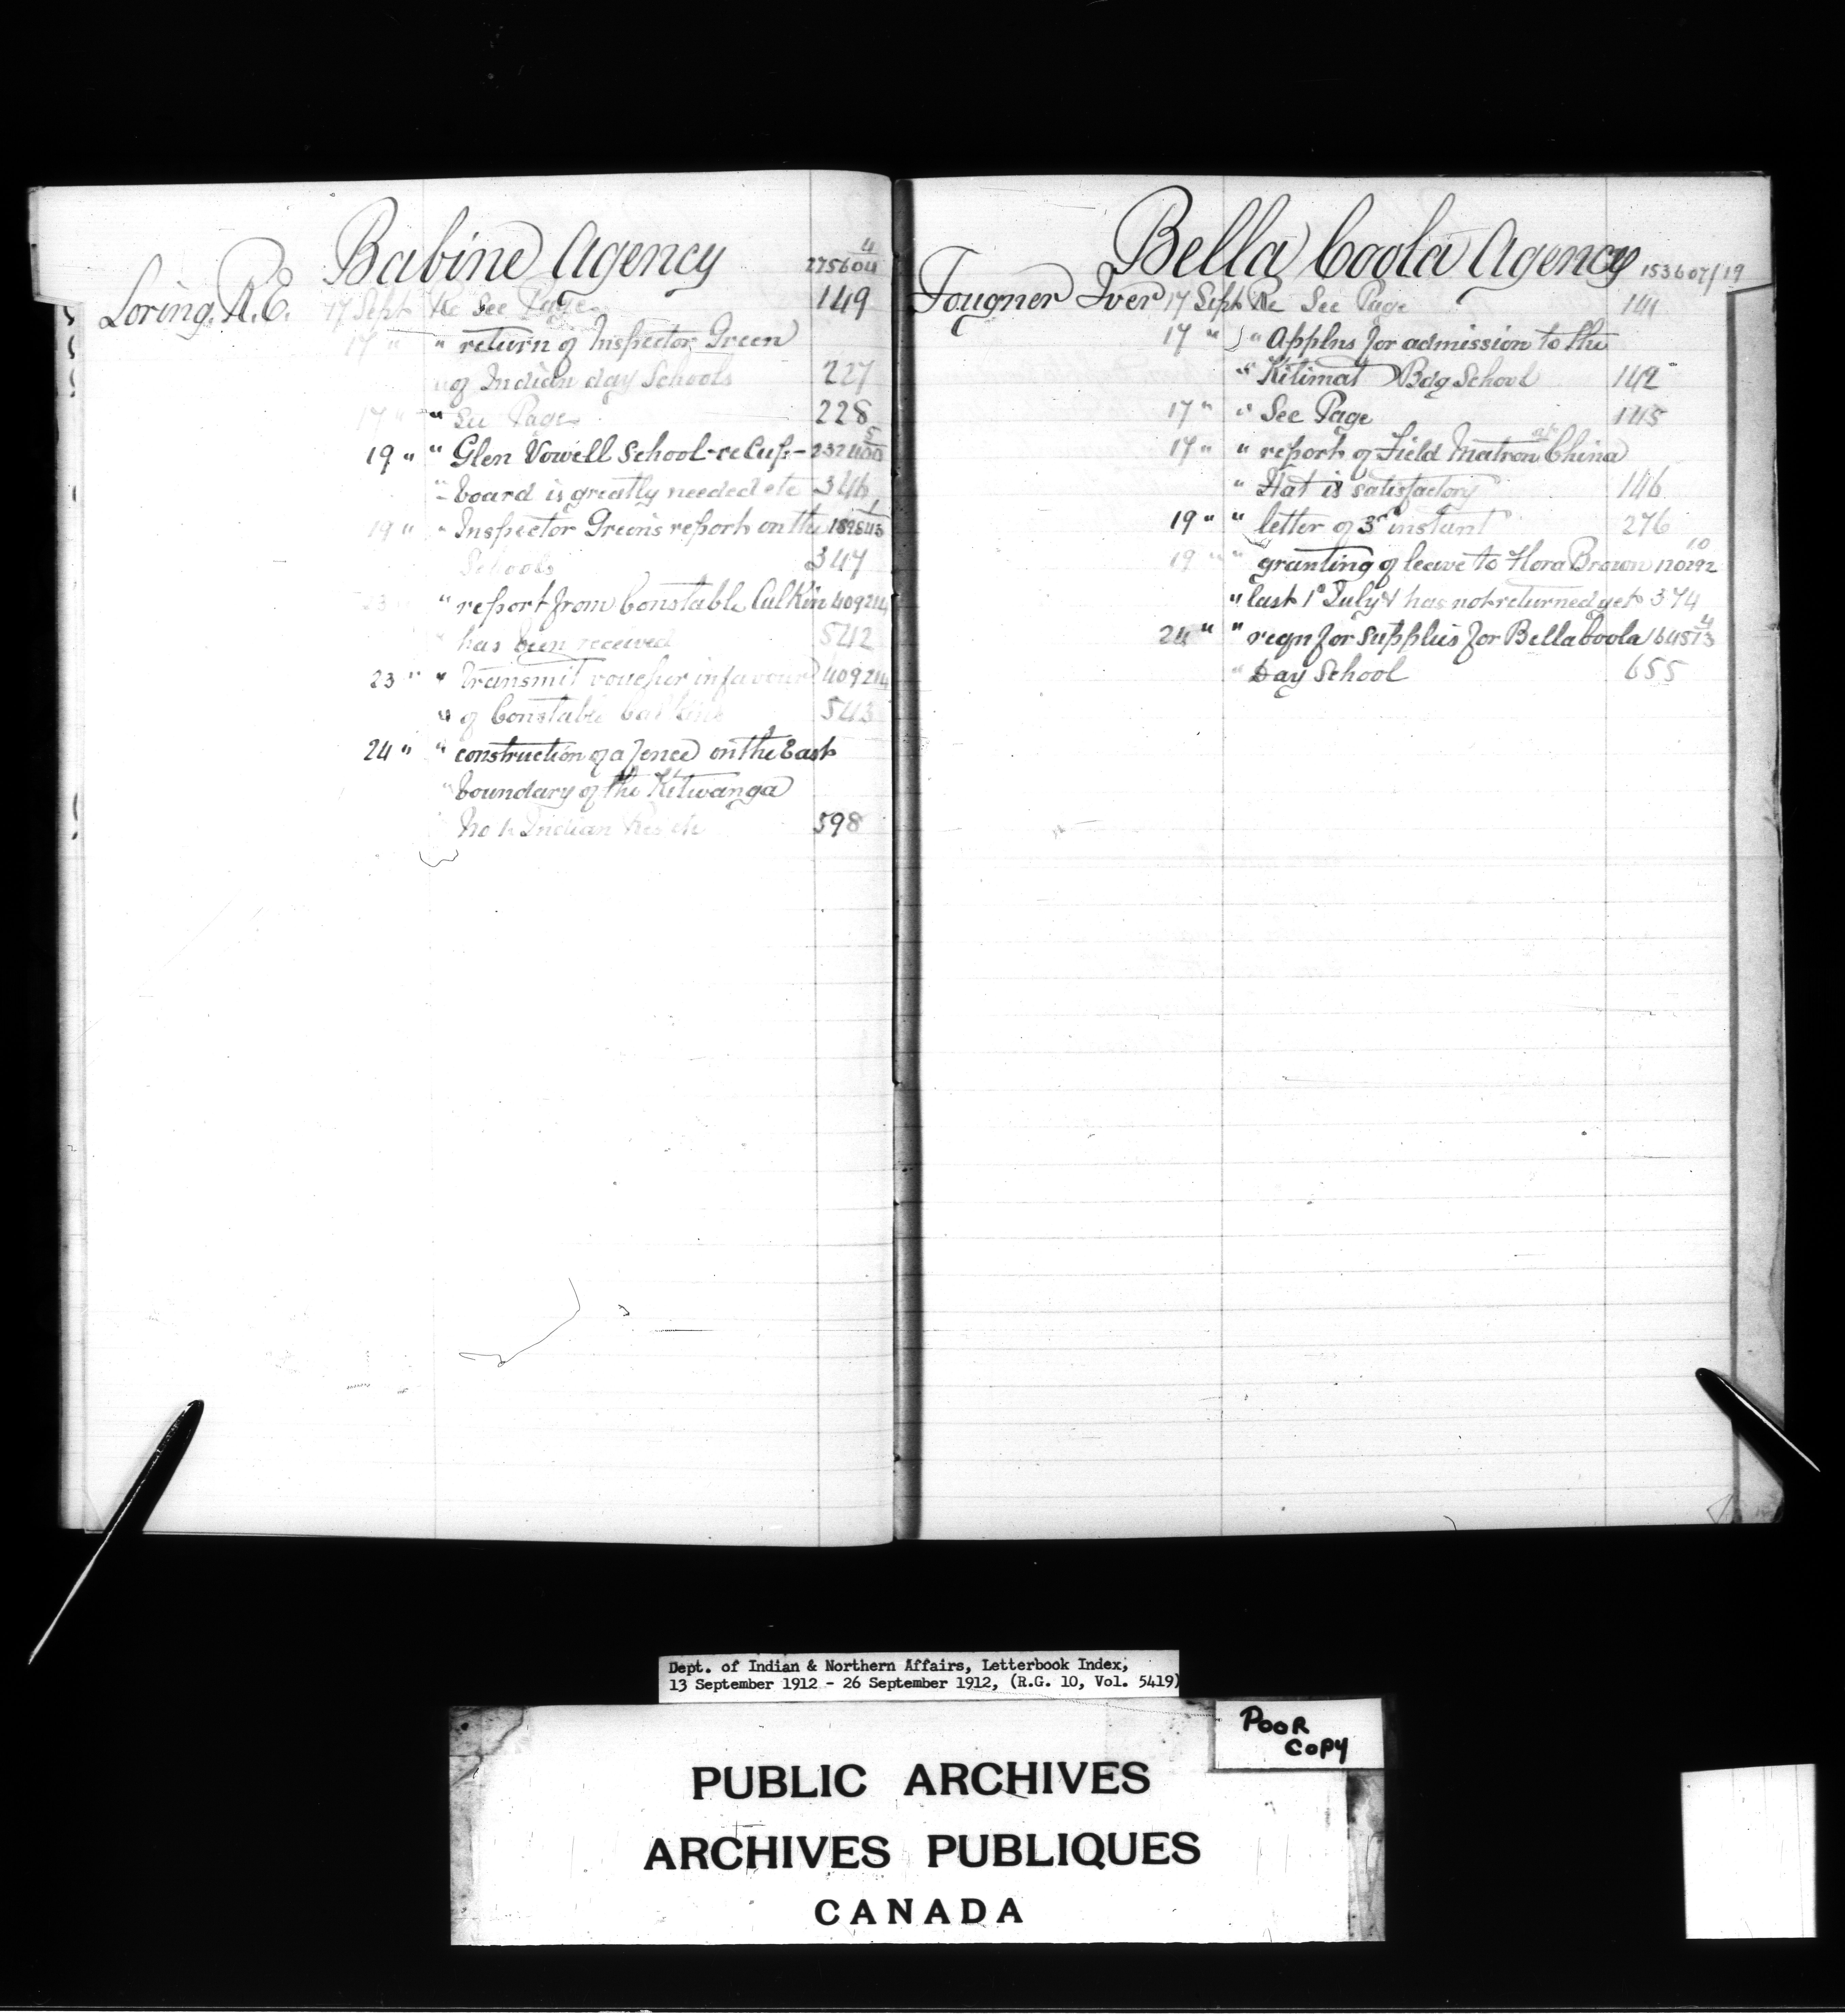 Babine Agency
4
275604
Loring, R.E. 17 Sept Re See Page 149
17 " " return of Inspector Green
" of Indian day Schools 227
17 " " See Page 228
5
19 " " Glen Vowell School - re Cup- 232400
" board is greatly needed etc 346
1
19 " " Inspector Green's report on the 189845
Schools 347
23 " report from Constable Culkin 409214
" has been received 542
23 " " Transmit voucher in favour 409214
" of Constable Culkin 543
24 " " construction of a fence on the East
" boundary of the Kitwanga
No 1 Indian 598
Bella Coola Agency
153607/19
Fougner Iver 17 Sept Re See Page 141
17 " " Applns for admission to the
" Kitimat Bdg School 142
17 " " See Page 145
at
17 " " report of Field Matron China
" Hat is satisfactory 146
19 " " letter of 3rd instant 276
10
19 " " granting of leave to Flora Brown 120292
" last 1st July & has not returned yet 374
4
24 " " reqn for supplies for Bella Coola 164573
" Day School 655
Dept. of Indian & Northern Affairs, Letterbook Index,
13 September 1912 - 26 September 1912, (R.G. 10, Vol. 5419)
POOR
COPY
PUBLIC ARCHIVES
ARCHIVES PUBLIQUES
CANADA